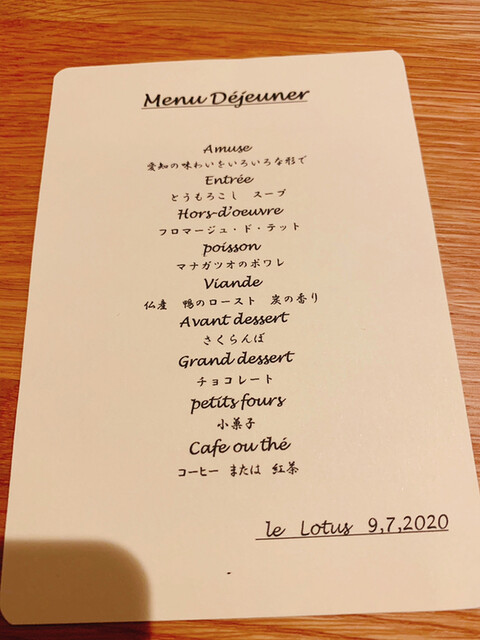 Menu Déjeuner
Amuse
愛知の味わいをいろいろな形で
Entrée
とうもろこし スープ
Hors-d'oeuvre
フロマージュ・ド・テット
poisson
マナガツオのポワレ
Viande
仏産 鴨のロースト 炭の香り
Avant dessert
さくらんぼ
Grand dessert
チョコレート
petits fours
小菓子
Cafe ou thé
コーヒー または 紅茶
le Lotus 9,7,2020